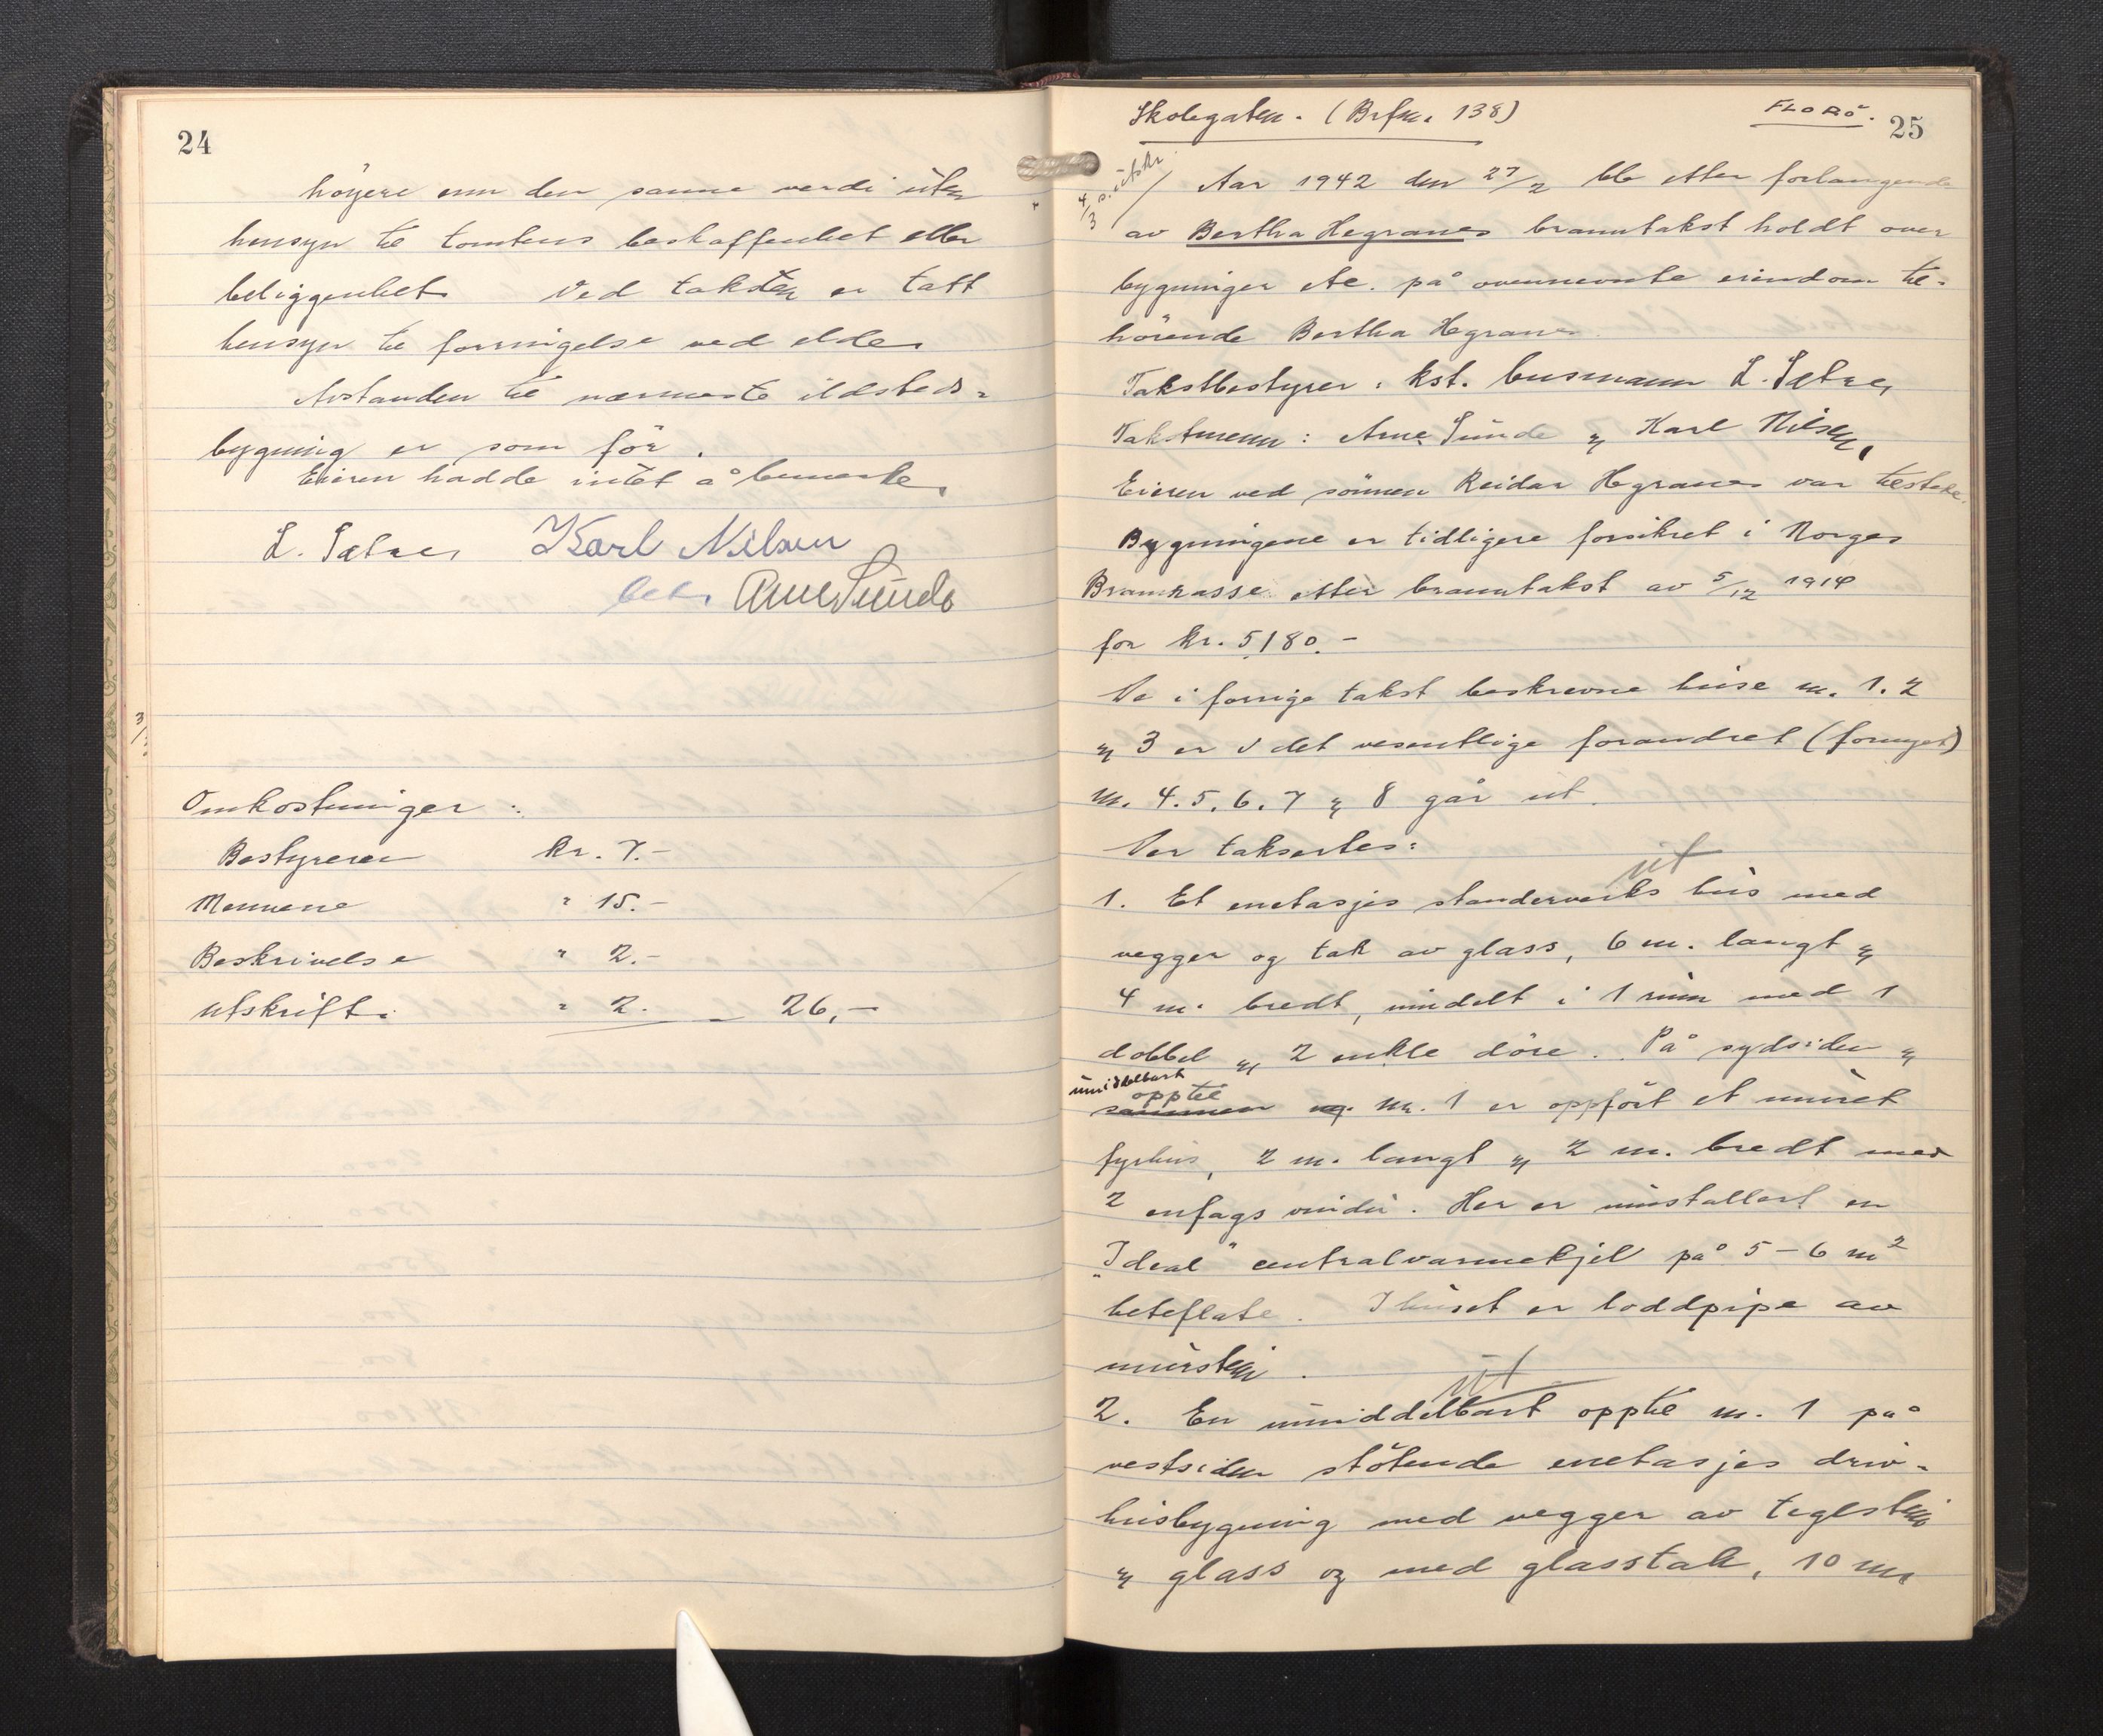 24
höyere enn den sanne verdi uten
hensyn til tomtens beskaffenhet eller
beliggenhet. Ved taksten er tatt
hensyn til forringelse ved elde.
Avstanden til nærmeste ildsteds=
bygning er som för.
Eieren hadde intet å bemerke.
L. Sætre, Karl Nilsen
Arne Sunde
Omkostninger :
Bestyreren kr. 7.-
Mennene " 15.-
Beskrivelse " 2.-
Utskrift. " 2. - 26,-
Skolegaten. (Brfnr. 138)
FLORÖ.
25
4/3 s. utskr
Aar 1942 den 27/2 ble etter forlangende
av Bertha Hegranes branntakst holdt over
bygninger etc. på ovennevnte eiendom til-
hörende Bertha Hegranes.
Takstbestyrer : kst. lensmann L. Sætre,
Takstmenn : Arne Sunde og Karl Nilsen,
Eieren ved sönnen Reidar Hegranes var tilstede.
Bygningene er tidligere forsikret i Norges
Brannkasse etter branntakst av 5/12 1914
for kr. 5180.-
De i forrige takst beskrevne huse nr. 1. 2
og 3 er i det vesentlige forandret (fornyet)
nr. 4. 5. 6. 7 og 8 går ut.
Der takseertes:
ut
1. Et enetasjes standerverks hus med
vegger og tak av glass, 6 m. langt og
4 m. bredt, inndelt i 1 rum med 1
dobbel og 2 enkle döre. På sydsiden og
umiddelbart
opptil
sammen nr. 1 er oppfört et muret
fyrhus, 2 m. langt og 2 m. bredt med
2 enfags vindu. Her er innstallert en
"Ideal" centralvarmekjel på 5-6 m2
heteflate. I huset er loddpipe av
murstein.
ut
2. En umiddelbart opptil nr. 1 på
vestsiden stötende enetasjes driv-
husbygning med vegger av teglstein
og glass og med glasstak, 10 m.